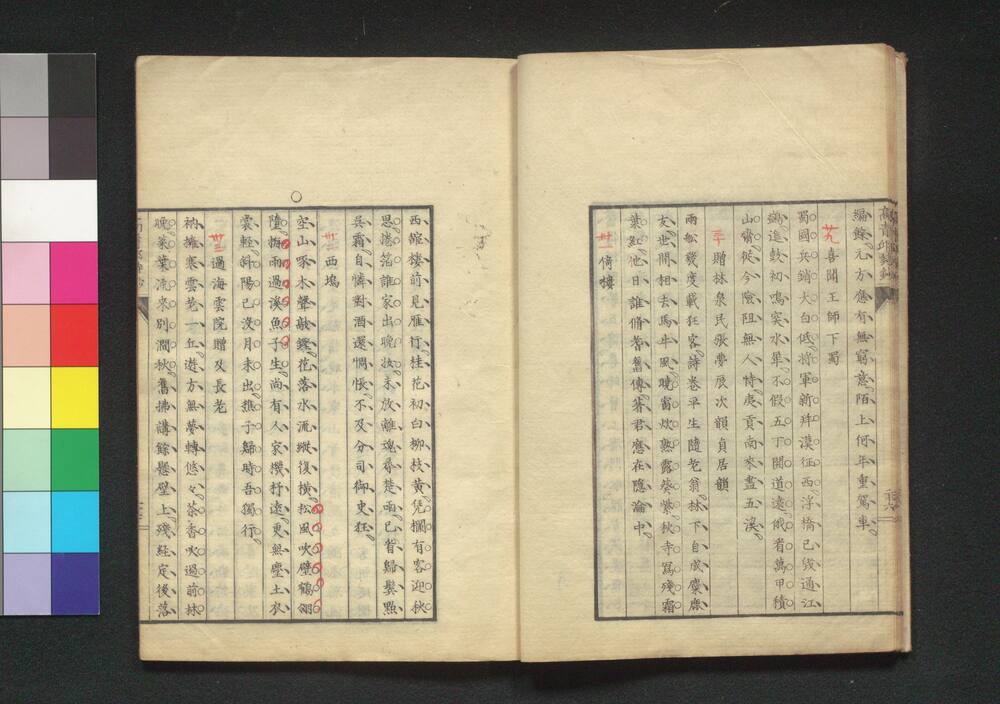 編餘元方應有無窮意陌上何年重駕車
廿九 喜聞王師下蜀
蜀國兵銷太白低將軍新拜漢征西浮橋已毀通江
鷁進鼓初鳴突水犀不假五丁開道遠俄看萬甲積
山齊從今險阻無人恃庚貢南來盡五溪
三十 贈林泉民張夢辰次韻貞居韻
兩船幾度載狂客詩卷平生隨老翁林下自成麋鹿
友世間相去馬牛風曉窗炊熟露葵紫秋寺寫殘霜
葉紅他日誰脩耆舊傳著君應在隱淪中
卅一 倚樓
西館樓前見雁行桂花初白柳枝黄凭欄有客迎秋
思捲箔誰家出晚妝柔放離魂尋楚雨已催歸鬢點
吳霜自憐對酒還惆悵不及分司御史狂
卅二 西塢
空山啄木聲敲鏗花落水流縱復橫松風吹壁鶴翎
墮梅雨過溪魚子生尚有人家機杼遠更無塵土衣
裳輕斜陽已沒月未出樵子歸時吾獨行
卅三 過海雲院贈及長老
衲擁寒雲老一丘遊方無夢轉悠々茶香吹過前林
晚葉葉流來別澗秋舊拂講餘懸壁上殘経定後落